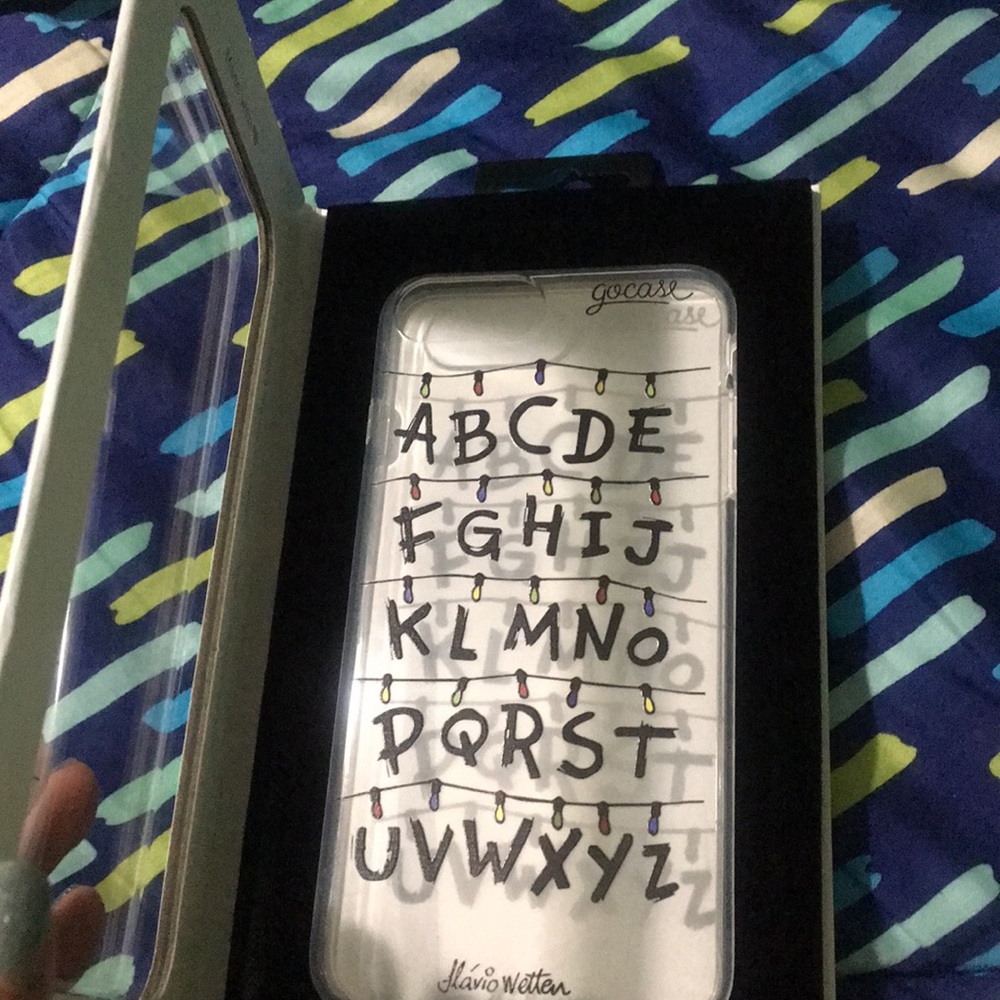 gocase
A B C D E
F G H I J
K L M N O
P Q R S T
U V W X Y Z
flávio wetten